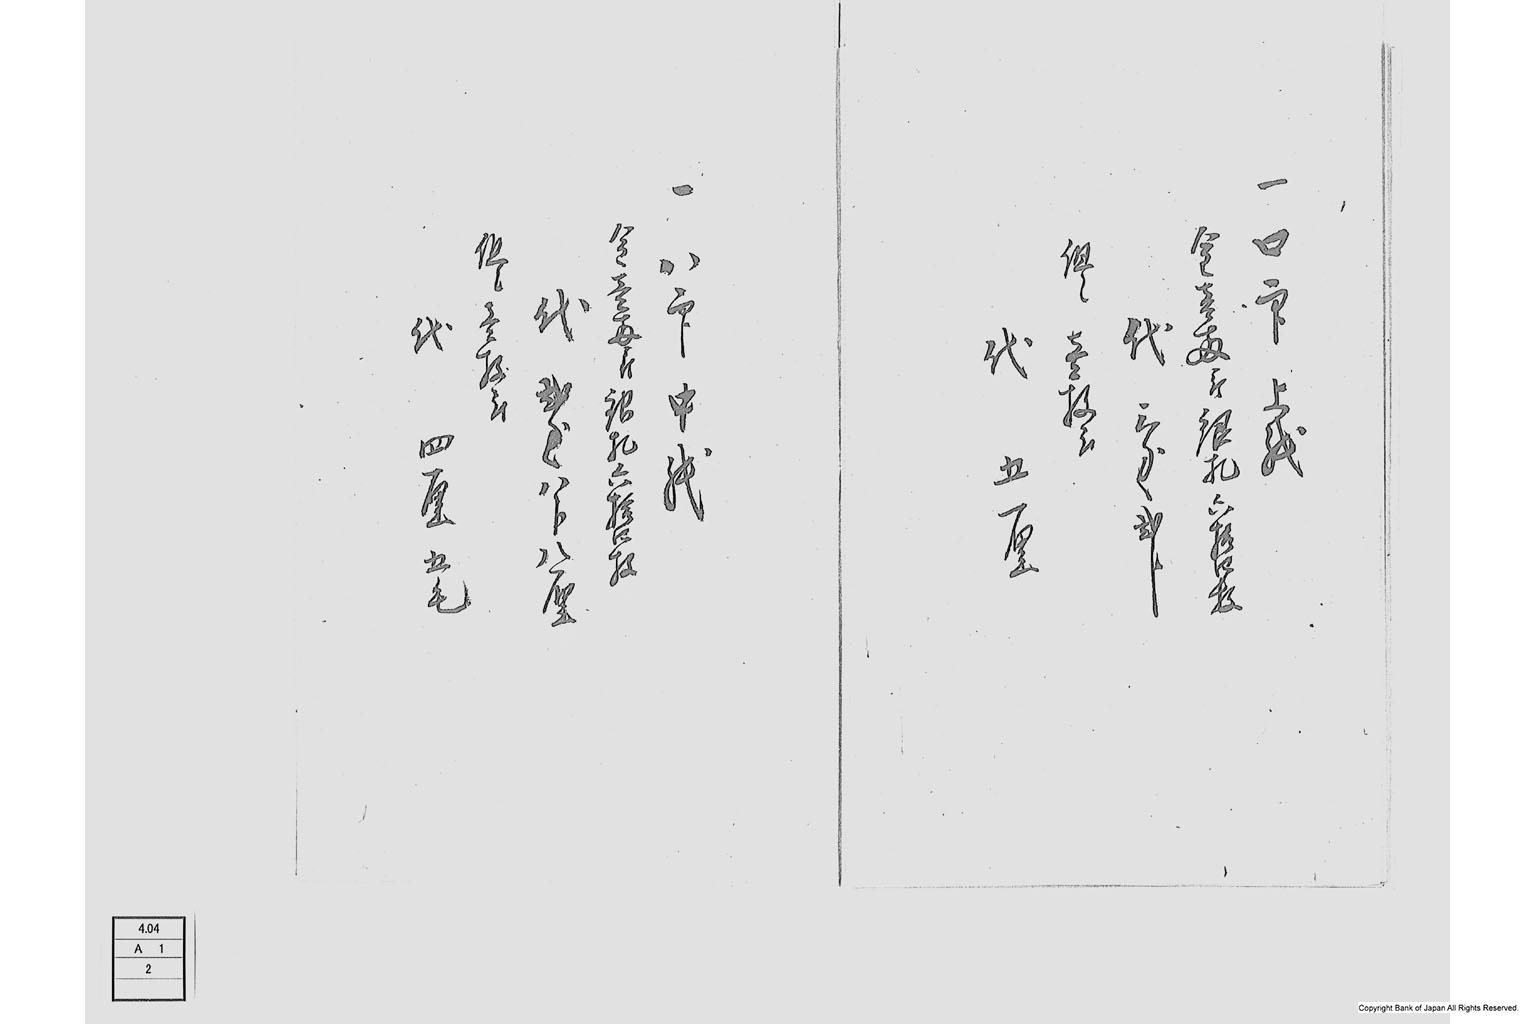 一 ロ印 上紙
金壱両ニ付銀札六拾四枚
代 三匁弐分
但し 壱枚ニ付
代 五厘
一 ハ印 中紙
金壱両ニ付銀札六拾四枚
代 弐匁八分八厘
但し 壱枚ニ付
代 四厘五毛
4.04
A 1
2
Copyright Bank of Japan All Rights Reserved.